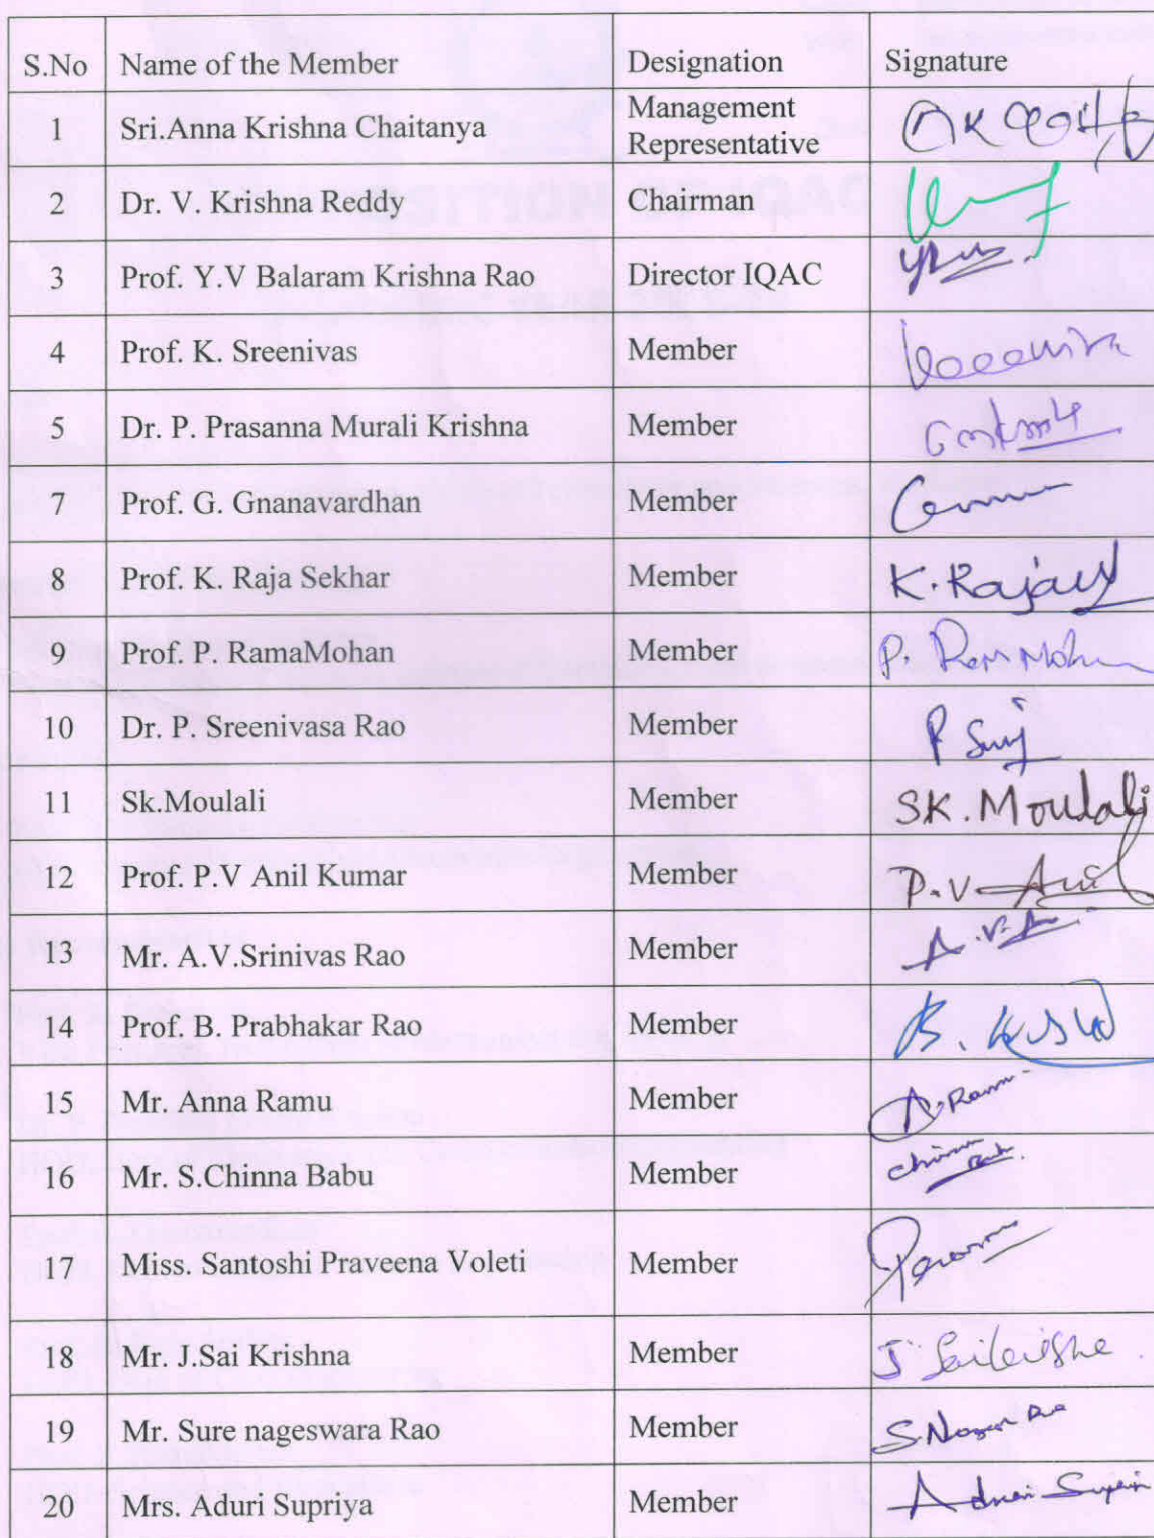 S.No Name of the Member Designation Signature
1 Sri.Anna Krishna Chaitanya Management Representative
2 Dr. V. Krishna Reddy Chairman
3 Prof. Y.V Balaram Krishna Rao Director IQAC
4 Prof. K. Sreenivas Member
5 Dr. P. Prasanna Murali Krishna Member
7 Prof. G. Gnanavardhan Member
8 Prof. K. Raja Sekhar Member
9 Prof. P. RamaMohan Member
10 Dr. P. Sreenivasa Rao Member
11 Sk.Moulali Member SK. Moulali
12 Prof. P.V Anil Kumar Member P.V. Anil
13 Mr. A.V.Srinivas Rao Member
14 Prof. B. Prabhakar Rao Member
15 Mr. Anna Ramu Member A. Ramu
16 Mr. S.Chinna Babu Member
17 Miss. Santoshi Praveena Voleti Member
18 Mr. J.Sai Krishna Member
19 Mr. Sure nageswara Rao Member
20 Mrs. Aduri Supriya Member